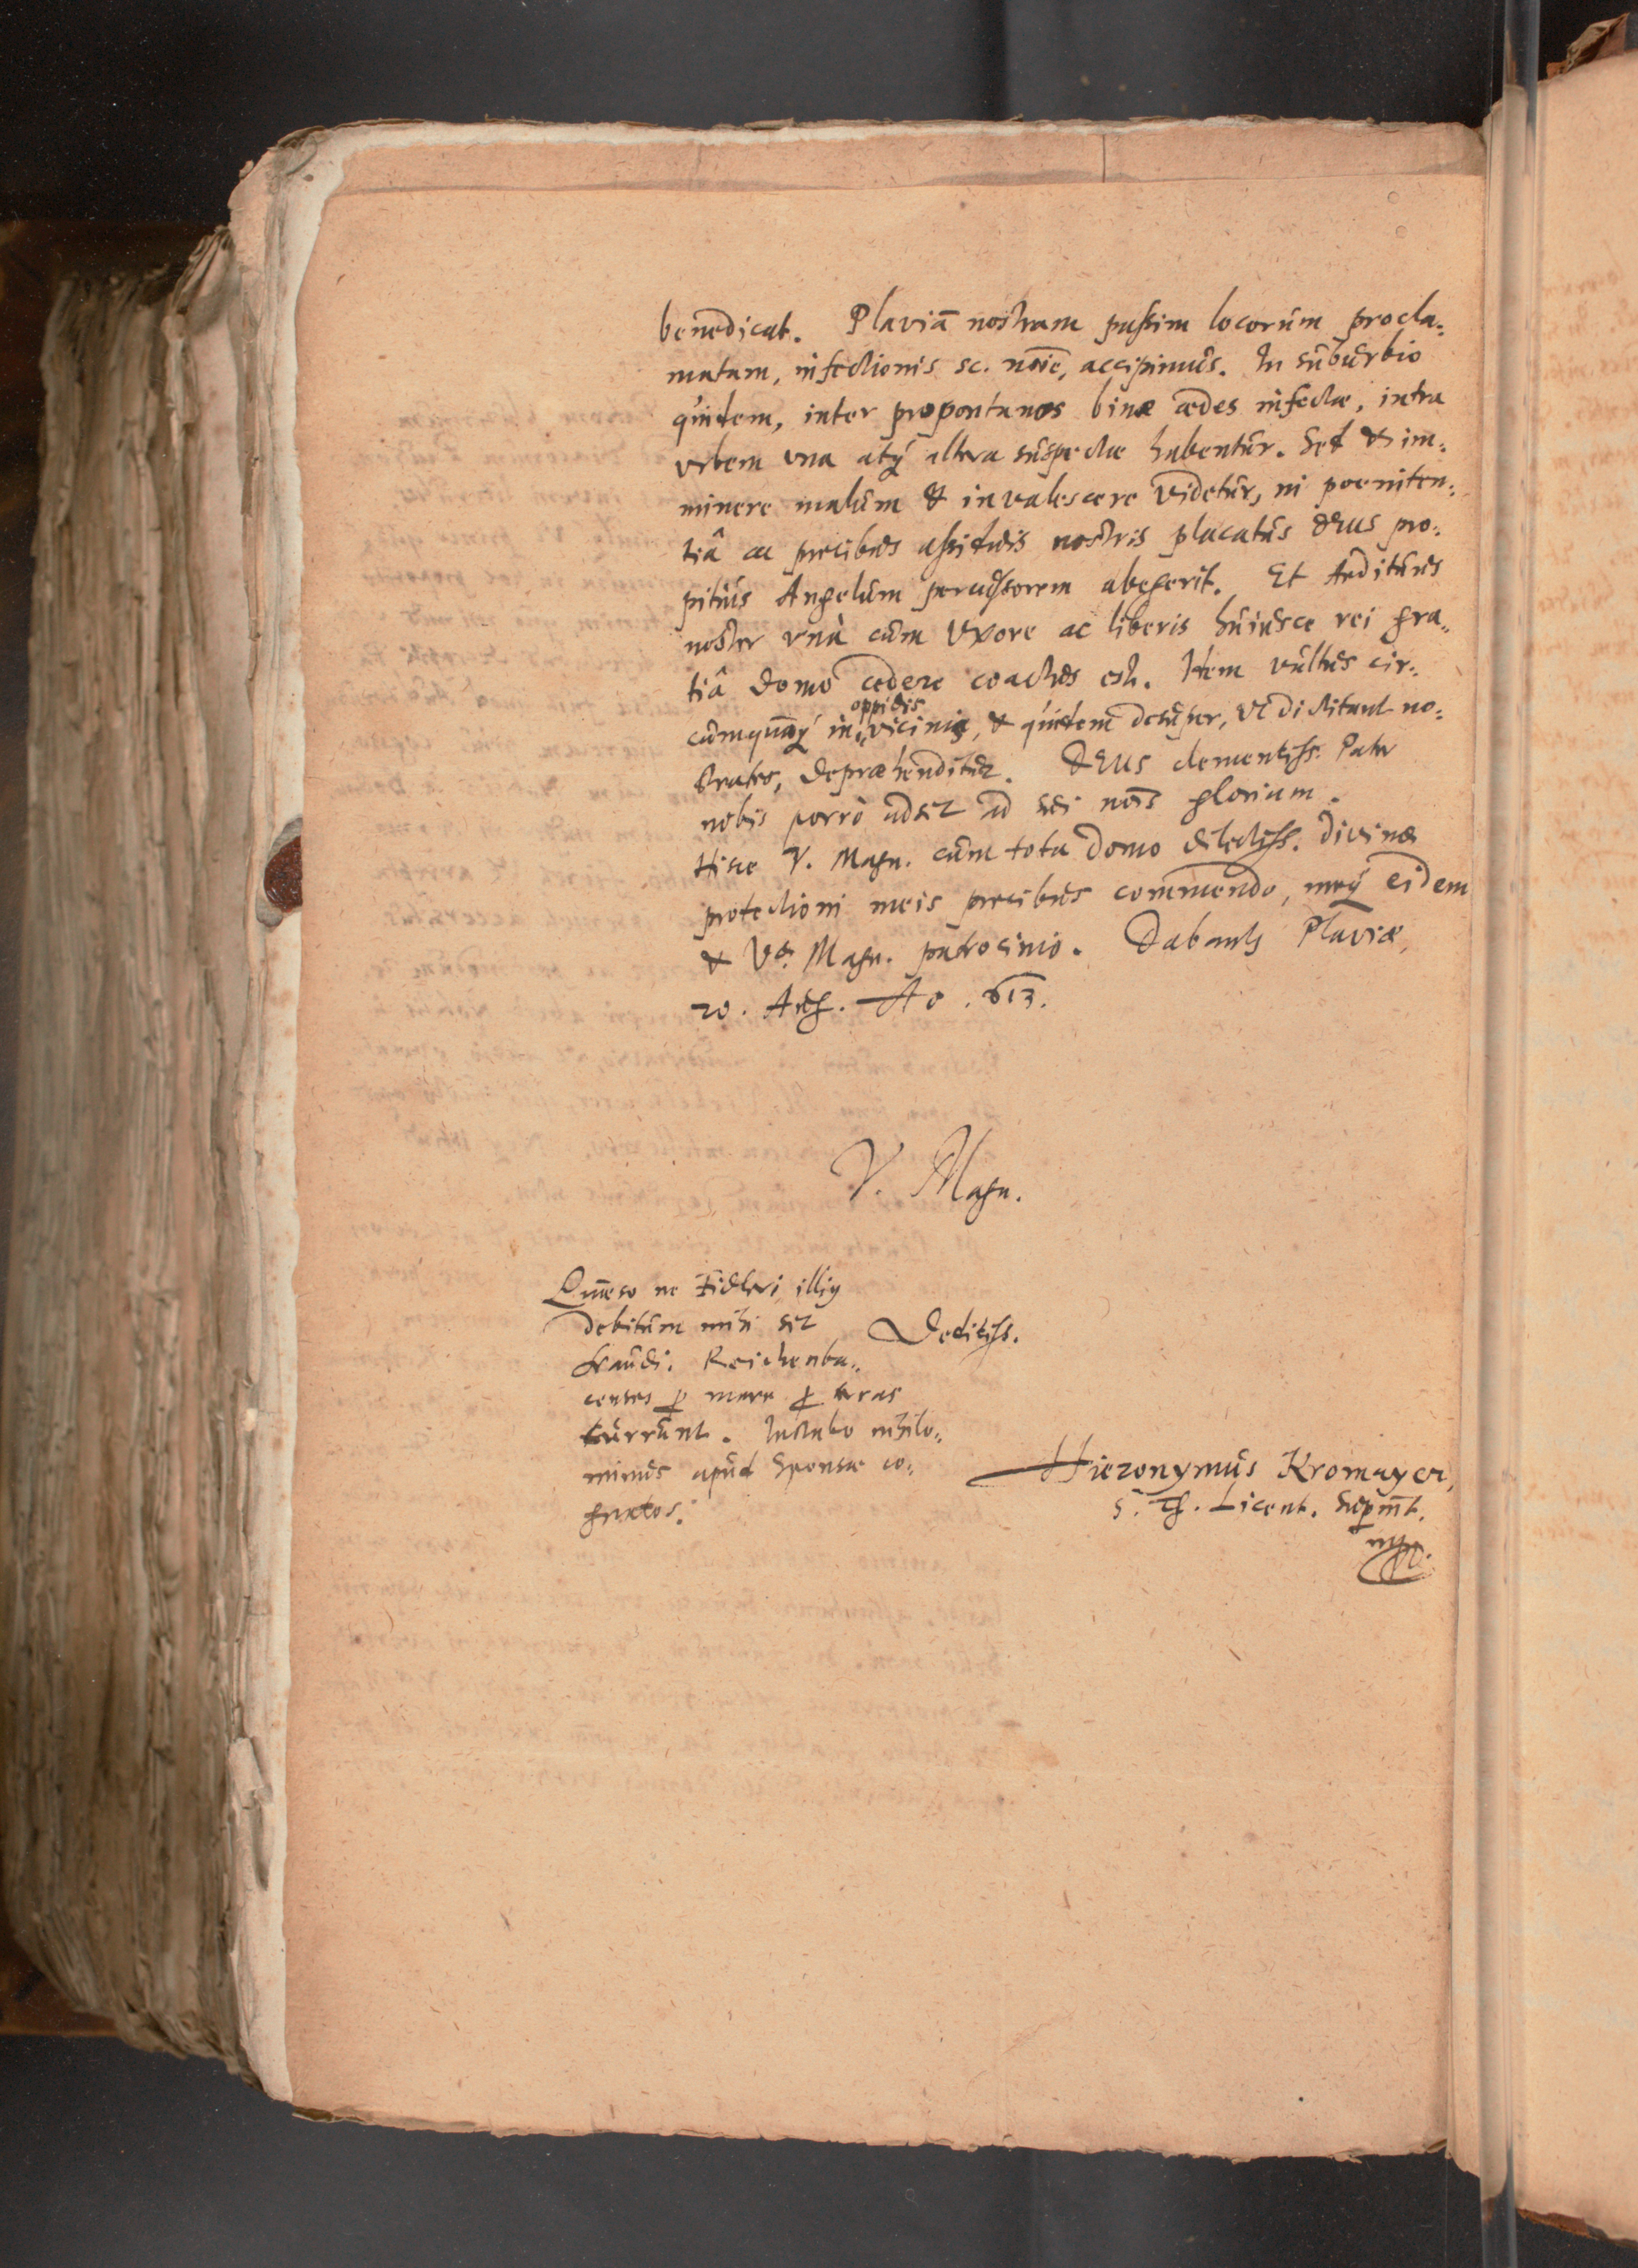 benedicat. Plaviā nostram passim locorum procla-
matam, infectionis sc. noīe, accipimus. In suburbio
quidem, inter propontanos binæ ædes infectæ, intra
urbem una atq̃ altera suspectæ habentur. Sed & im-
minere malum & invalescere videtur, ni poeniten-
tiâ ac precibus assiduis nostris placatus DEUS pro-
pitius Angelum percussorem abegerit. Et Aedituus
noster unà cum Uxore ac liberis huiusce rei gra-
tiâ domo cedere coactus est. Idem vultus cir-
cumquāq̃ in oppidis vicinis, & quidem desuper, ut dictitant no-
strates, depræhenditur. DEUS clementiss. Pater
nobis porrò adsit ad sui nōis gloriam.
Hisce V. Magn. cum tota domo dilectiss. divinæ
protectioni meis precibus commendo, meq̃ eidem
& Væ Magn. patrocinio. Dabantur Plaviæ,
20. Aug. Ao. 613.
V. Magn.
Quæso ne Fidleri illiq
debitum mihi sit
fraudi. Reichenba-
censes p mare p terras
currunt. Instabo nihilo-
minus apud Sponsæ co-
gnatos.
Deditiss.
Hieronymus Kromayer,
S. Th. Licent. Supint.
mpr.